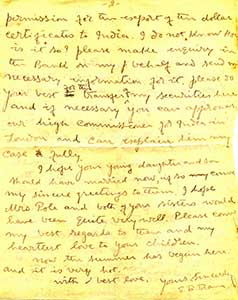 -2-
permission for the export of the dollar
certificates to India. I do not know how
is it so? please make enquiry in
the Bank on my behalf and send me
necessary information for it. please do
your best for the transfer of my securities here
and if necessary you can approach
our high commissioner for India, in
London and can explain him my
case fully.
I hope your daughter and son
should have married now, if so may convey
my sincere greetings to them. I hope
Mrs Pole and both of your sisters would
have been quite very well. Please convey
my best regards to them and my
heartiest love to your children.
Now the summer has begun here
and it is very hot.
with best love. yours sincerely